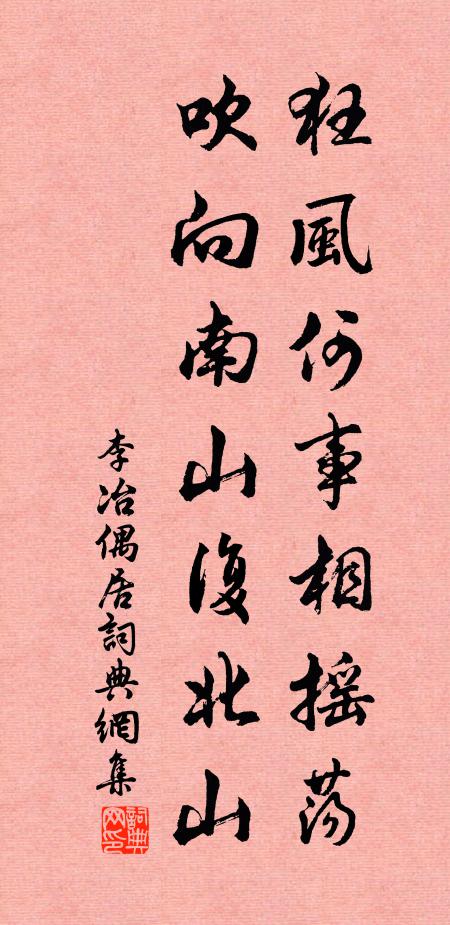 狂風何事相搖蕩
吹向南山復北山
李冶偶居詞典網集
詞典網印